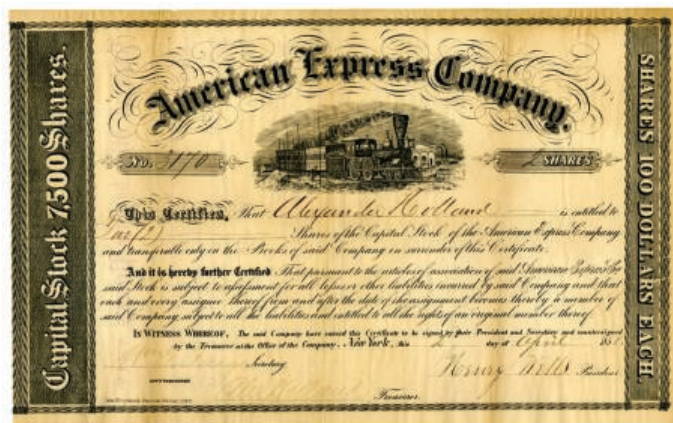 American Express Company.
Capital Stock 7,500 Shares.
SHARES 100 DOLLARS EACH.
No. 3170
2 SHARES
This Certifies, That Alexander Holland is entitled to
Two (2) Shares of the Capital Stock of the American Express Company
and transferable only on the Books of said Company on surrender of this Certificate.
And it is hereby further Certified That pursuant to the articles of association of said American Express Co
said Stock is subject to assessment for all losses or other liabilities incurred by said Company and that
each and every assignee thereof from and after the date of the assignment becomes thereby a member of
said Company subject to all the liabilities and entitled to all the rights of an original member thereof.
IN WITNESS WHEREOF, The said Company have caused this Certificate to be signed by their President and Secretary and countersigned
by the Treasurer at the Office of the Company, New York, this 2 day of April 185
Secretary
Henry Wells President
COUNTERSIGNED
Treasurer.